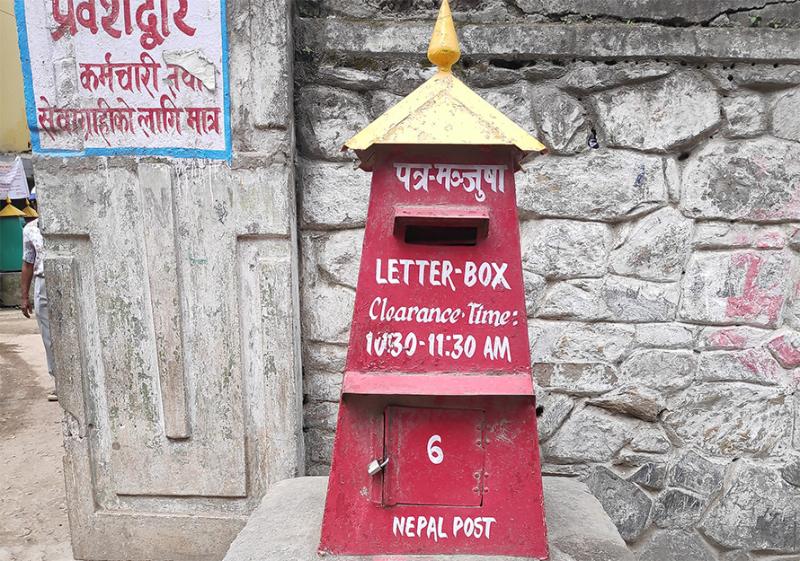 प्रवेशद्वार
कर्मचारी तथा
सेवाग्राहीको लागि मात्र
पत्र-मञ्जुषा
LETTER-BOX
Clearance Time:
10:30-11:30 AM
6
NEPAL POST